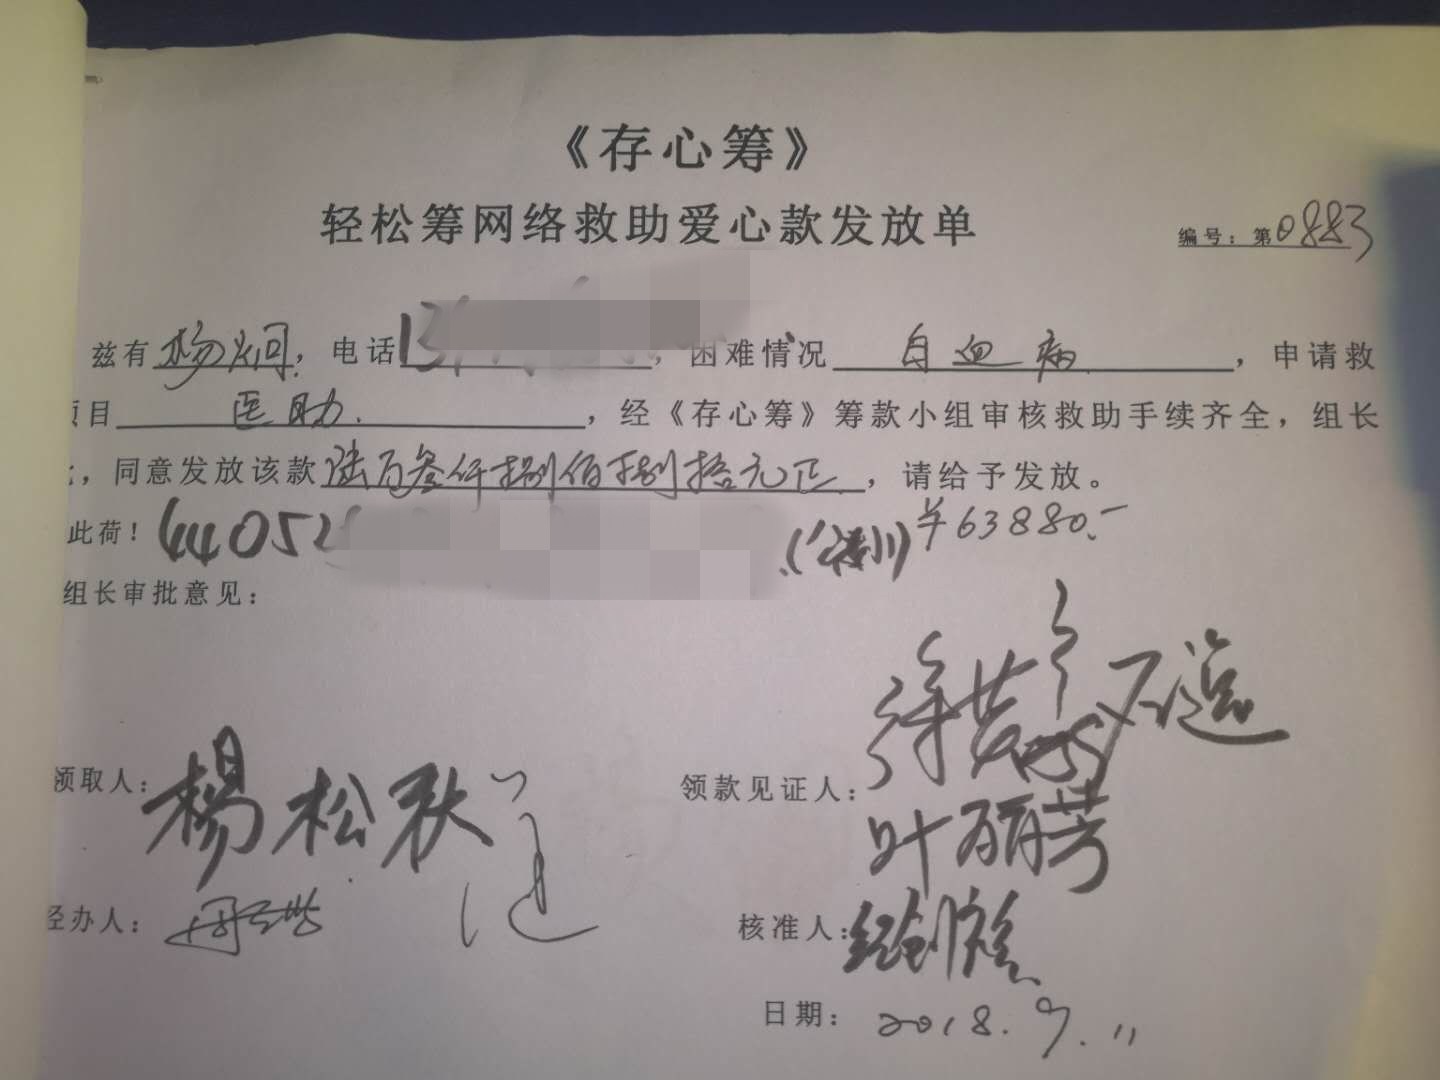 《存心筹》
轻松筹网络救助爱心款发放单
编号：第0883
兹有杨炯，电话13，困难情况白血病，申请救
项目医助，经《存心筹》筹款小组审核救助手续齐全，组长
，同意发放该款陆万叁仟捌佰捌拾元正，请给予发放。
此荷！44052 ￥63880.-
组长审批意见：
领取人：杨松秋
领款见证人：
叶丽芳
经办人：
核准人：
日期：2018.9.11